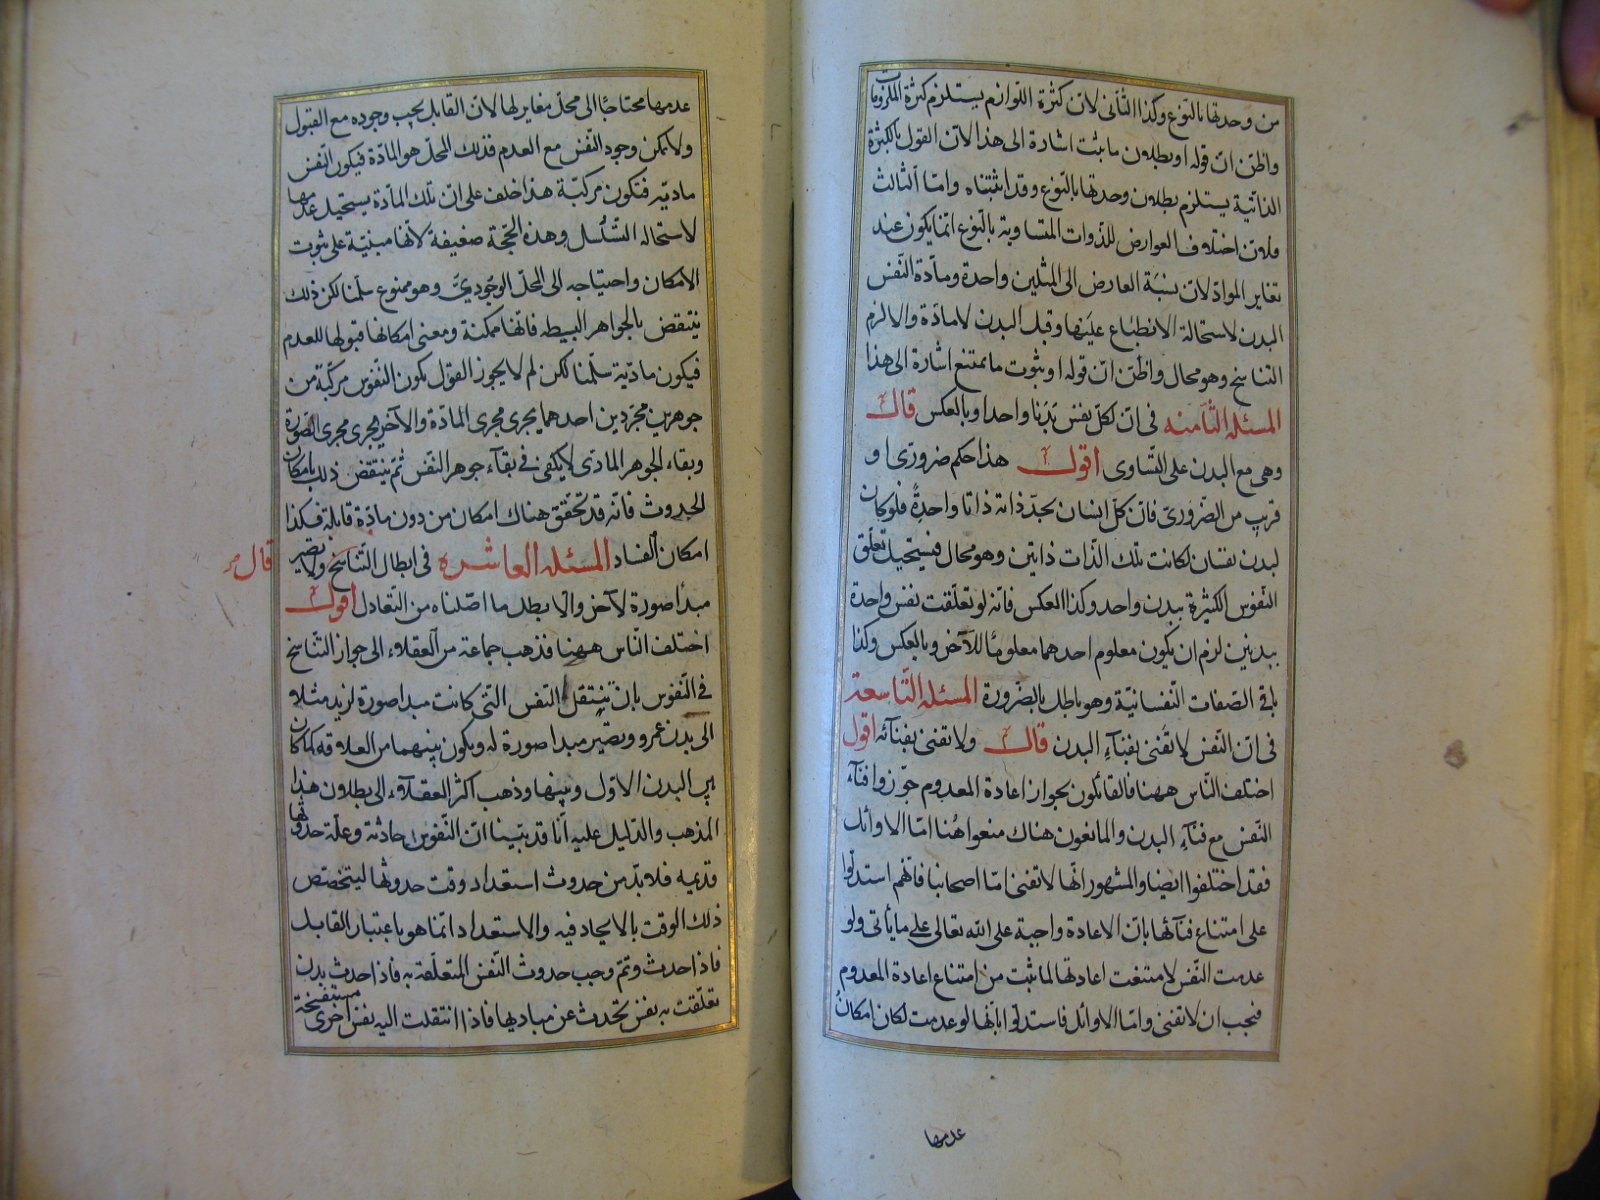 من وحدتها بالنوع وكذا الثاني لان كثرة اللوازم يستلزم كثرة الملزومات
واظن ان قوله او بطلان ما ثبت اشارة الى هذا لان القول بالكثرة
الذاتية يستلزم بطلان وحدتها بالنوع وقد اثبتناه واما الثالث
فلان اختلاف العوارض للذوات المتساوية بالنوع انما يكون عند
تغاير المواد لان نسبة العارض الى المثلين واحدة ومادة النفس
البدن لاستحالة الانطباع عليها وقبل البدن لا مادة والا لزم
التناسخ وهو محال واظن ان قوله او ثبوت ما يمتنع اشارة الى هذا
المسئلة الثامنه في ان لكل نفس بدنا واحدا وبالعكس قال
وهي مع البدن على التساوى اقول هذا حكم ضرورى او
قريب من الضرورى فان كل انسان يجد ذاته ذاتا واحدة فلو كان
لبدن نفسان لكانت تلك الذات ذاتين وهو محال فيستحيل تعلق
النفوس الكثيرة ببدن واحد وكذا العكس فانه لو تعلقت نفس واحدة
ببدنين لزم ان يكون معلوم احدهما معلوما للآخر وبالعكس وكذا
باقي الصفات النفسانية وهو باطل بالضرورة المسئلة التاسعة
في ان النفس لا تفنى بفناء البدن قال ولا تفنى بفنائه اقول
اختلف الناس ههنا فالقائلون بجواز اعادة المعدوم جوزوا فناء
النفس مع فناء البدن والمانعون هناك منعوا هنا اما الاوائل
فقد اختلفوا ايضا والمشهور انها لا تفنى اما اصحابنا فانهم استدلوا
على امتناع فنائها بان الاعادة واجبة على الله تعالى على ما يأتى ولو
عدمت النفس لامتنعت اعادتها لما ثبت من امتناع اعادة المعدوم
فيجب ان لا تفنى واما الاوائل فاستدلوا بانها لو عدمت لكان امكان
عدمها
عدمها محتاجا الى محل مغاير لها لان القابل يجب وجوده مع القبول
ولا يمكن وجود النفس مع العدم فذلك المحل هو المادة فيكون النفس
مادية فتكون مركبة هذا خلف على ان تلك المادة يستحيل عدمها
لاستحالة التسلسل وهذه الحجة ضعيفة لانها مبنية على ثبوت
الامكان واحتياجه الى المحل الوجودي وهو ممنوع سلمنا لكن ذلك
ينتقض بالجواهر البسيطه فانها ممكنة ومعنى امكانها قبولها للعدم
فيكون مادية سلمنا لكن لم لا يجوز القول بكون النفوس مركبة من
جوهرين مجردين احدهما يجرى مجرى المادة والآخر يجرى مجرى الصورة
وبقاء الجوهر المادى لا يكفى في بقاء جوهر النفس ثم ينتقض ذلك بامكان
الحدوث فانه قد تحقق هناك امكان من دون مادة قابلة فكذا
امكان الفساد المسئلة العاشره في ابطال التناسخ قال ولا تصير
مبدأ صورة لآخر والا بطل ما اصلناه من التعادل اقول
اختلف الناس ههنا فذهب جماعة من العقلاء الى جواز التناسخ
في النفوس بان ينتقل النفس التى كانت مبدا صورة لزيد مثلا
الى بدن عمرو وتصير مبدا صورة له ويكون بينهما من العلاقه كما كان
بين البدن الاول وبينها وذهب اكثر العقلاء الى بطلان هذا
المذهب والدليل عليه انا قد بينا ان النفوس حادثة وعلة حدوثها
قديمه فلا بد من حدوث استعداد وقت حدوثها ليتخصص
ذلك الوقت بالايجاد فيه والاستعداد انما هو باعتبار القابل
فاذا حدث وتم وجب حدوث النفس المتعلقة به فاذا حدث بدن
تعلقت به نفس تحدث عن مباديها فاذا انتقلت اليه نفس اخرى مستنسخة